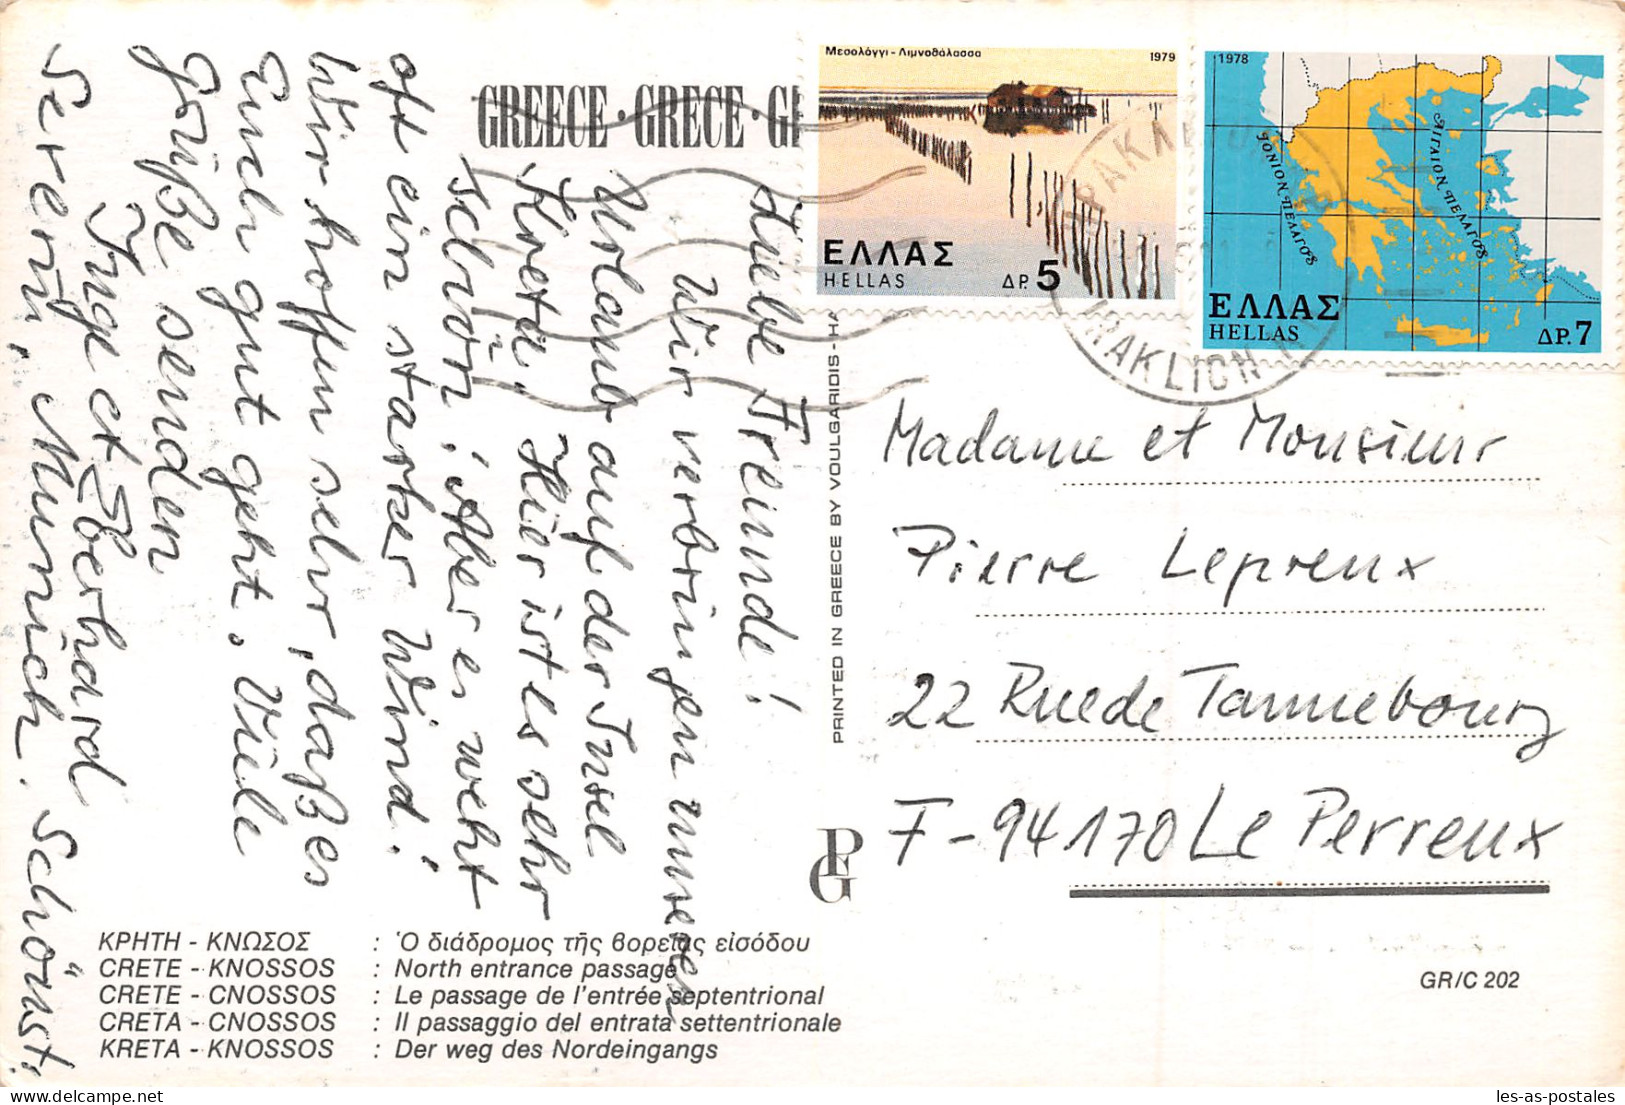 GREECE · GRECE · GR
Μεσολόγγι - Λιμνοθάλασσα
1979
ΕΛΛΑΣ
HELLAS
ΔΡ. 5
1978
ΙΟΝΙΟΝ ΠΕΛΑΓΟΣ
ΑΙΓΑΙΟΝ ΠΕΛΑΓΟΣ
ΕΛΛΑΣ
HELLAS
ΔΡ. 7
IRAKLION
Liebe Freunde!
Wir verbringen unseren
Urlaub auf der Insel
Kreta. Hier ist es sehr
schön! Aber es weht
oft ein starker Wind!
Wir hoffen sehr, daß es
Euch gut geht. Viele
Grüße senden
Inge et Eberhard
Severin, Munich. Schönst.
PRINTED IN GREECE BY VOULGARIDIS - HA
PG
Madame et Monsieur
Pierre Lepreux
22 Rue de Tannebourg
F-94170 Le Perreux
ΚΡΗΤΗ - ΚΝΩΣΟΣ : Ὁ διάδρομος τῆς βορείας εἰσόδου
CRETE - KNOSSOS : North entrance passage
CRETE - CNOSSOS : Le passage de l'entrée septentrional
CRETA - CNOSSOS : Il passaggio del entrata settentrionale
KRETA - KNOSSOS : Der weg des Nordeingangs
GR/C 202
les-as-postales